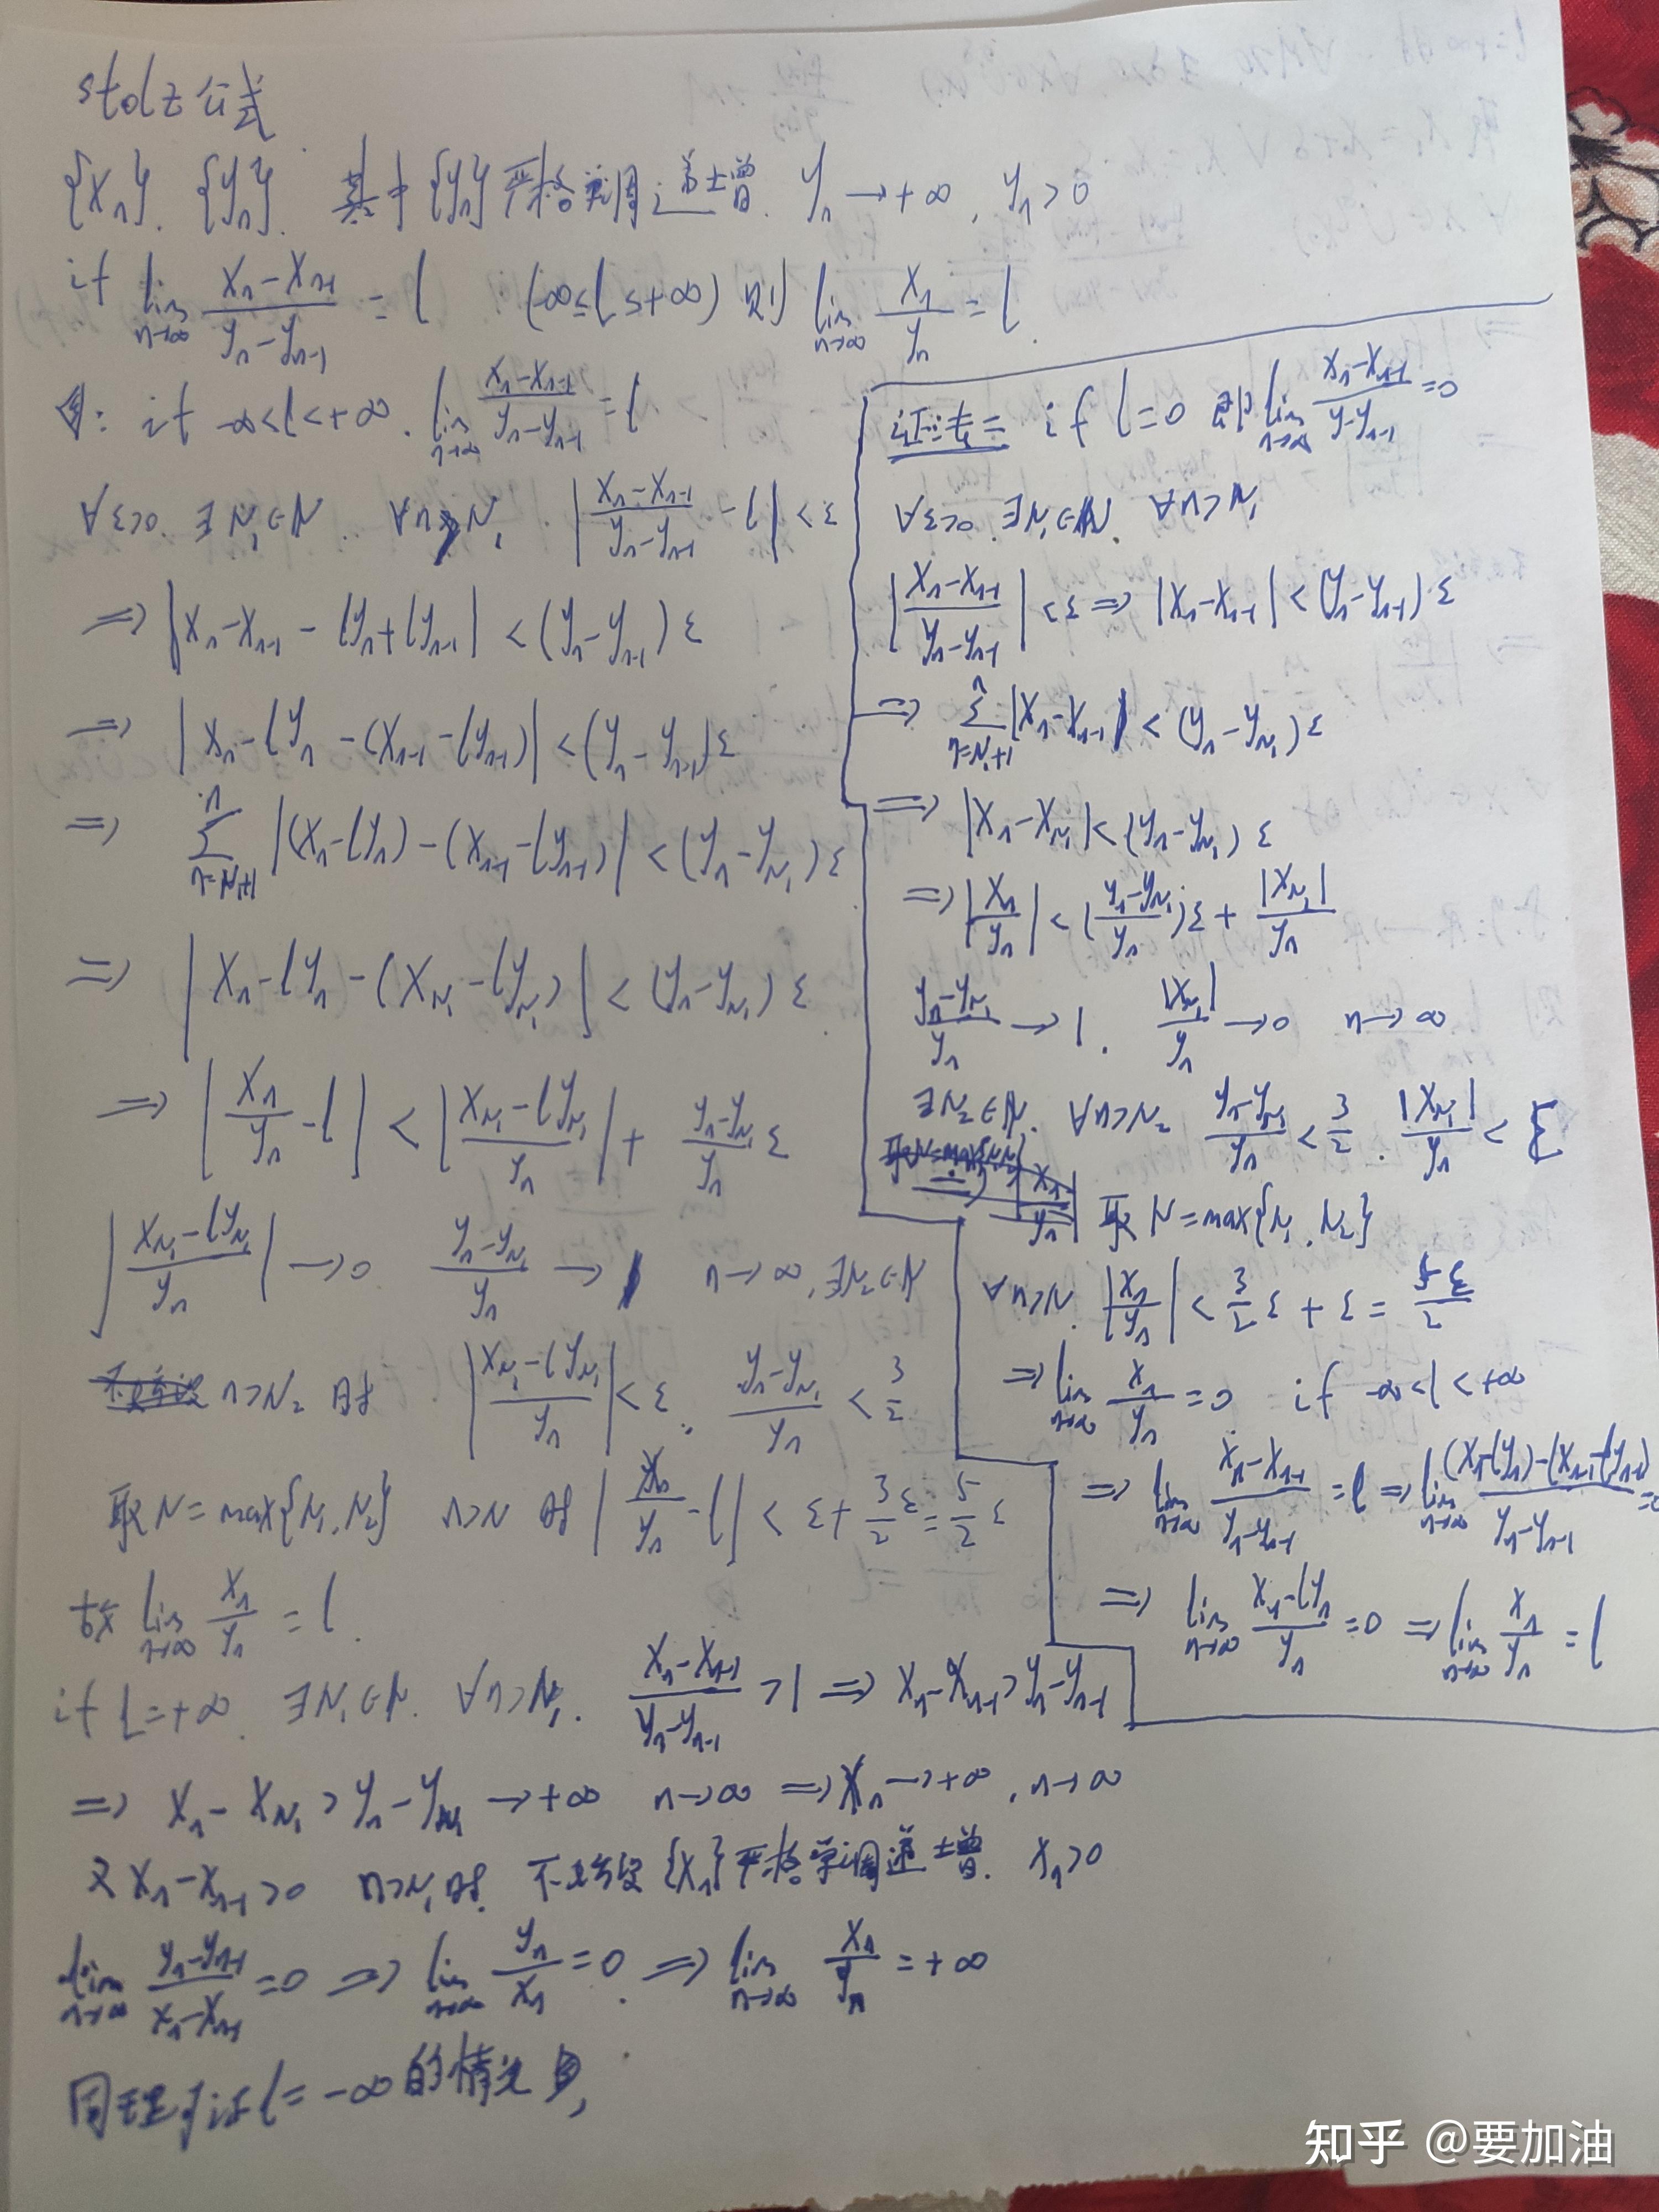 stolz公式
{xₙ}. {yₙ}. 其中{yₙ}严格单调递增. yₙ→+∞, yₙ>0
if lim_{n→∞} (xₙ-xₙ₋₁)/(yₙ-yₙ₋₁) = l (-∞≤l≤+∞) 则 lim_{n→∞} xₙ/yₙ = l.
: if -∞<l<+∞. lim_{n→∞} (xₙ-xₙ₋₁)/(yₙ-yₙ₋₁) = l
∀ε>0. ∃N₁∈N. ∀n>N₁. |(xₙ-xₙ₋₁)/(yₙ-yₙ₋₁) - l| < ε
⇒ |xₙ-xₙ₋₁-lyₙ+lyₙ₋₁| < (yₙ-yₙ₋₁)ε
⇒ |xₙ-lyₙ-(xₙ₋₁-lyₙ₋₁)| < (yₙ-yₙ₋₁)ε
⇒ Σ_{n=N₁+1}^{n} |(xₙ-lyₙ)-(xₙ₋₁-lyₙ₋₁)| < (yₙ-y_{N₁})ε
⇒ |xₙ-lyₙ-(x_{N₁}-ly_{N₁})| < (yₙ-y_{N₁})ε
⇒ |xₙ/yₙ - l| < |(x_{N₁}-ly_{N₁})/yₙ| + (yₙ-y_{N₁})/yₙ ε
|(x_{N₁}-ly_{N₁})/yₙ| → 0 (yₙ-y_{N₁})/yₙ → 1 n→∞, ∃N₂∈N
n>N₂时 |(x_{N₁}-ly_{N₁})/yₙ| < ε. (yₙ-y_{N₁})/yₙ < 3/2
取N=max{N₁,N₂} n>N时 |xₙ/yₙ - l| < ε+3/2 ε = 5/2 ε
故 lim_{n→∞} xₙ/yₙ = l.
if l=+∞. ∃N₁∈N. ∀n>N₁. (xₙ-xₙ₋₁)/(yₙ-yₙ₋₁) > 1 ⇒ xₙ-xₙ₋₁ > yₙ-yₙ₋₁
⇒ xₙ-x_{N₁} > yₙ-y_{N₁} → +∞ n→∞ ⇒ xₙ→+∞, n→∞
又xₙ-xₙ₋₁>0 n>N₁时. 不妨设{xₙ}严格单调递增. xₙ>0
lim_{n→∞} (yₙ-yₙ₋₁)/(xₙ-xₙ₋₁) = 0 ⇒ lim_{n→∞} yₙ/xₙ = 0. ⇒ lim_{n→∞} xₙ/yₙ = +∞
同理可证l=-∞的情况
证法二 if l=0 即 lim_{n→∞} (xₙ-xₙ₋₁)/(y-yₙ₋₁) = 0
∀ε>0. ∃N₁∈N. ∀n>N₁
|(xₙ-xₙ₋₁)/(yₙ-yₙ₋₁)| < ε ⇒ |xₙ-xₙ₋₁| < (yₙ-yₙ₋₁)·ε
⇒ Σ_{n=N₁+1}^{n} |xₙ-xₙ₋₁| < (yₙ-y_{N₁})ε
⇒ |xₙ-x_{N₁}| < (yₙ-y_{N₁})ε
⇒ |xₙ/yₙ| < ((yₙ-y_{N₁})/yₙ)ε + |x_{N₁}|/yₙ
(yₙ-y_{N₁})/yₙ → 1. |x_{N₁}|/yₙ → 0 n→∞
∃N₂∈N. ∀n>N₂ (yₙ-y_{N₁})/yₙ < 3/2. |x_{N₁}|/yₙ < ε
取N=max{N₁,N₂}
∀n>N. |xₙ/yₙ| < 3/2 ε + ε = 5ε/2
⇒ lim_{n→∞} xₙ/yₙ = 0 if -∞<l<+∞
⇒ lim_{n→∞} (xₙ-xₙ₋₁)/(yₙ-yₙ₋₁) = l ⇒ lim_{n→∞} ((xₙ-lyₙ)-(xₙ₋₁-lyₙ₋₁))/(yₙ-yₙ₋₁) = 0
⇒ lim_{n→∞} (xₙ-lyₙ)/yₙ = 0 ⇒ lim_{n→∞} xₙ/yₙ = l
知乎 @要加油